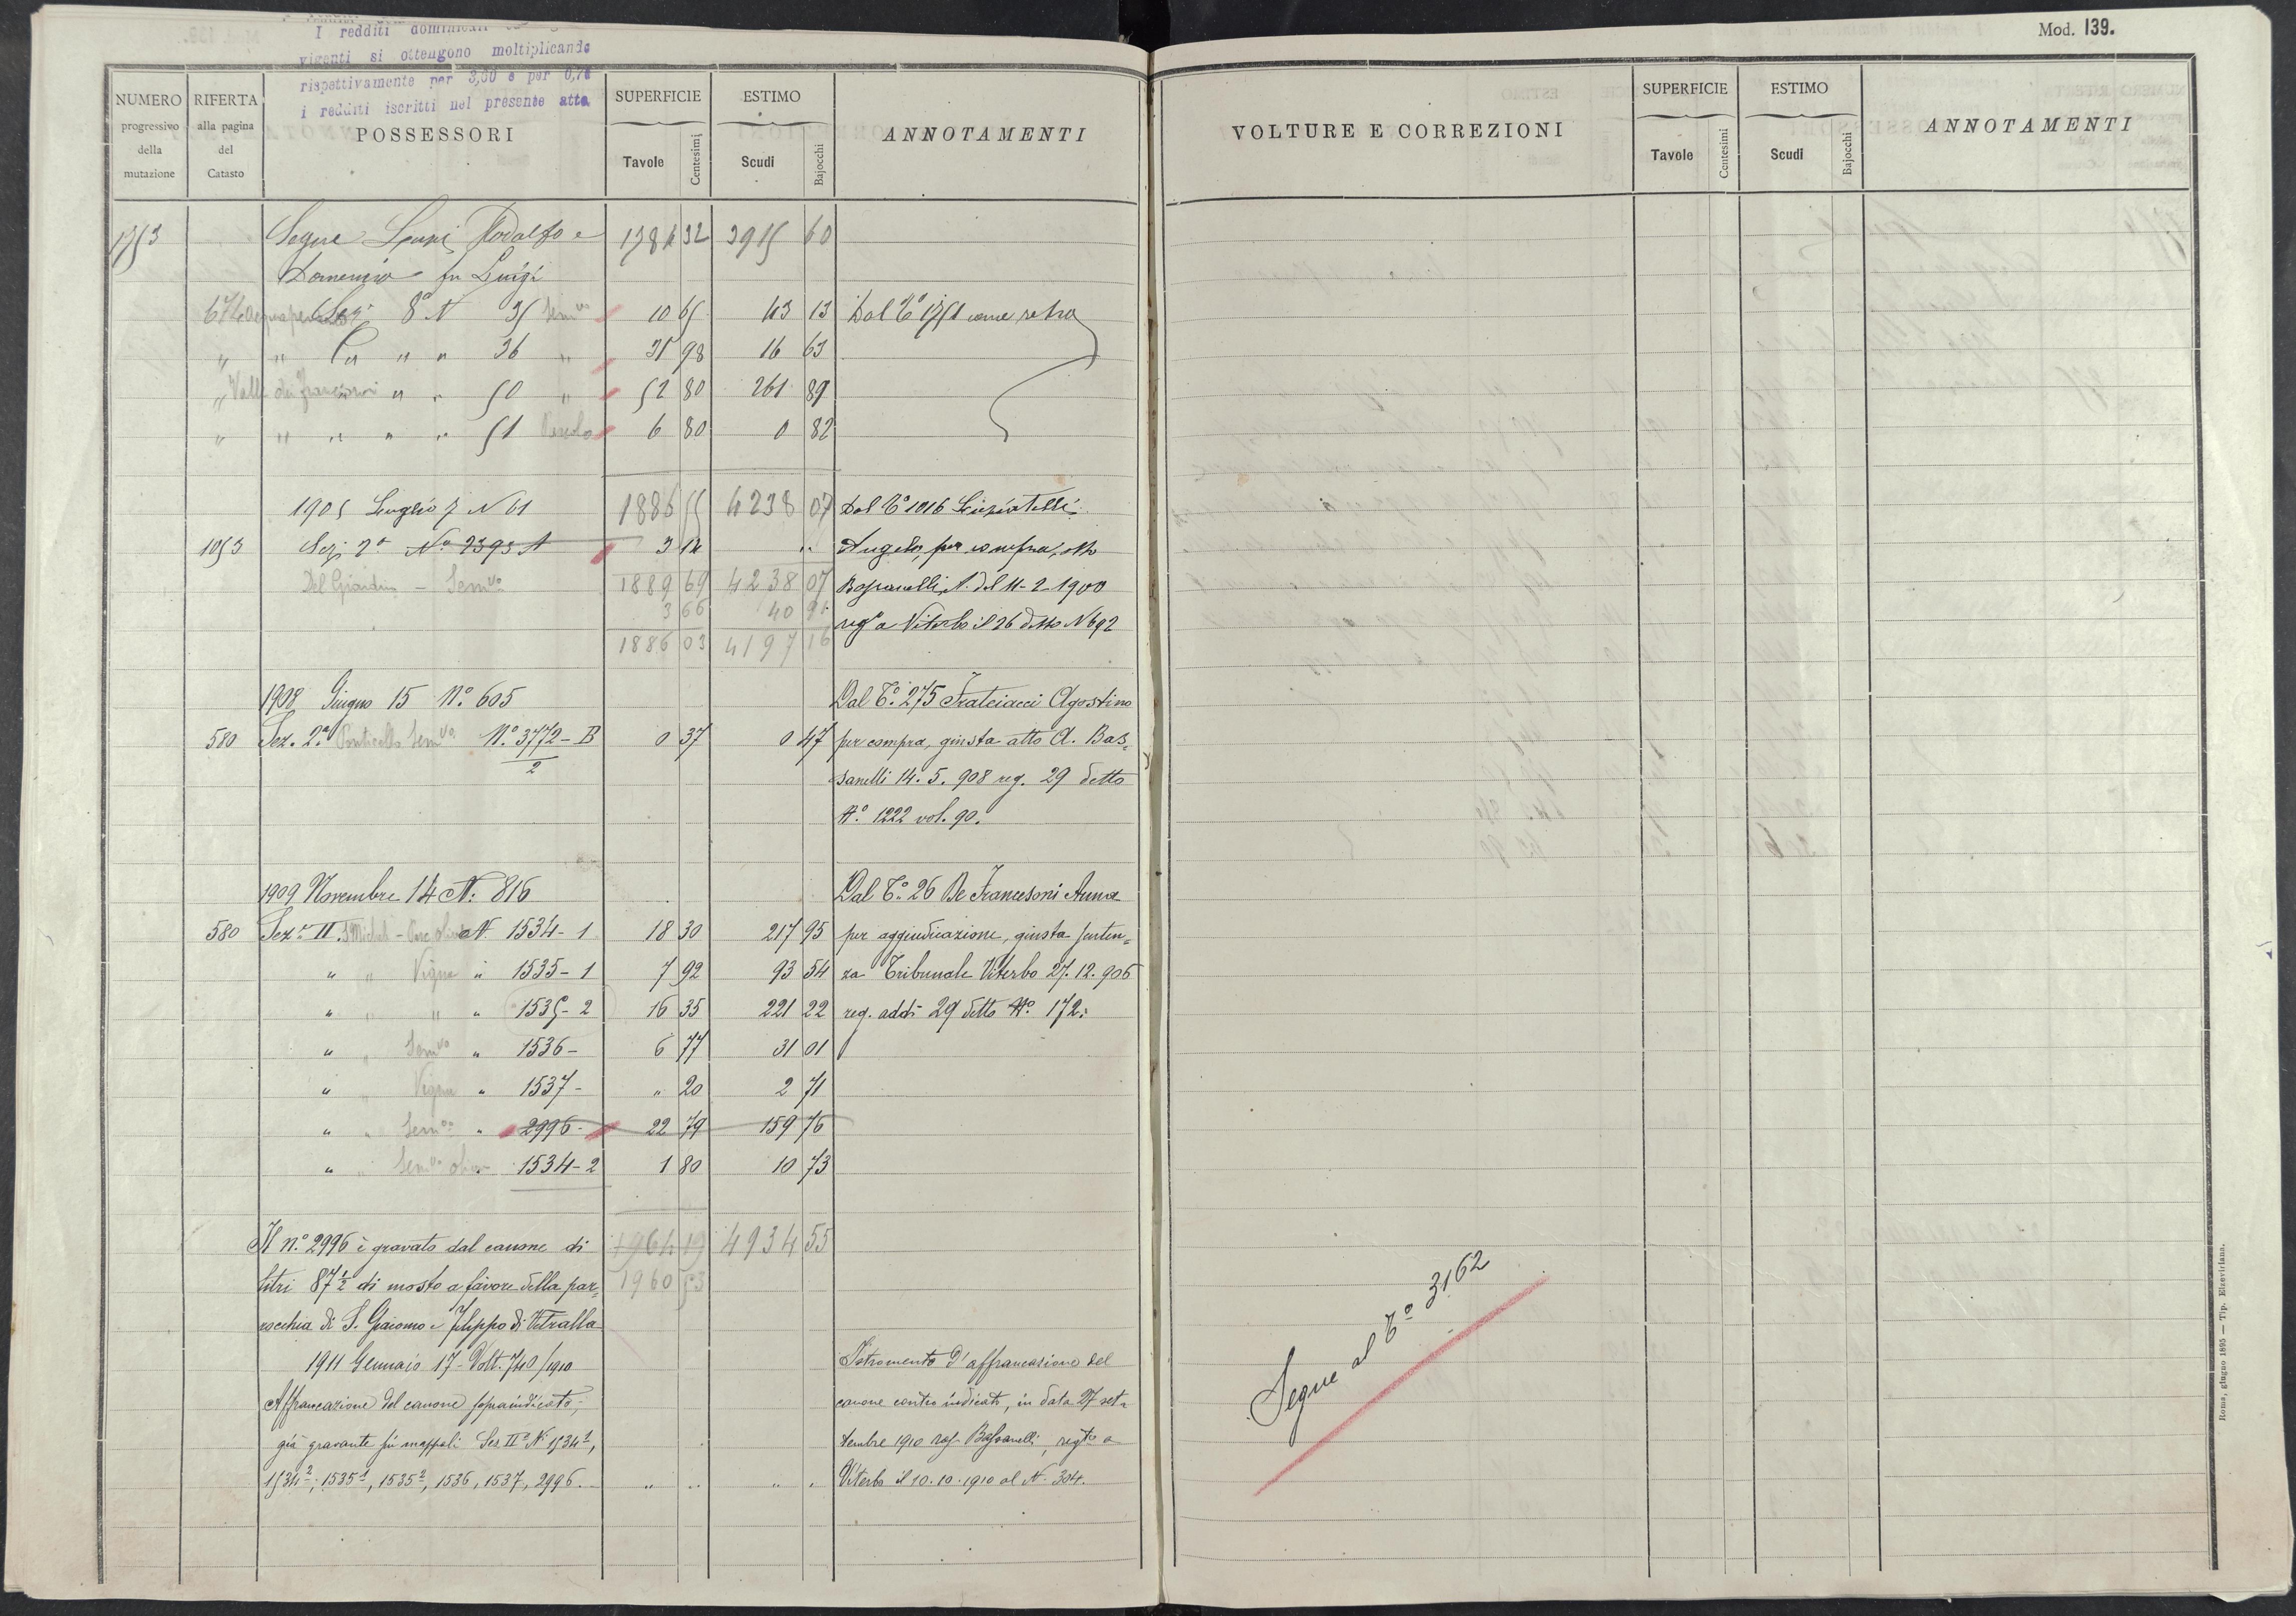 Mod. 139.
I redditi dominicali
vigenti si ottengono moltiplicando
rispettivamente per 3,60 e per 0,76
i redditi iscritti nel presente atto
NUMERO progressivo della mutazione
RIFERTA alla pagina del Catasto
POSSESSORI
SUPERFICIE Tavole Centesimi
ESTIMO Scudi Bajocchi
ANNOTAMENTI
VOLTURE E CORREZIONI
SUPERFICIE Tavole Centesimi
ESTIMO Scudi Bajocchi
ANNOTAMENTI
Segue Rodolfo e 32 3915 60
Domenico fu Luigi
Sez. 8ª N 35 Semvo 10 65 43 13 Dal Tº 1751 come retro
" " " " 36 " 31 98 16 63
" Valle dei " " 50 " 52 80 261 89
" " " " " 51 6 80 0 82
1905 Luglio 7 N 61 1886 55 4238 07 Dal Tº 1016
1053 Sez. 2ª Nº 2393 A 3 14 " Angelo, per compra, atto
Del Giardino - Semvo 1889 69 4238 07 Bassanelli A. del 11-2-1900
3 66 40 91
1886 03 4197 16 regº a Viterbo il 26 detto N 692
1908 Giugno 15 Nº 605 Dal Tº 275 Frateiacci Agostino
580 Sez. 2ª Ponticello Semvo Nº 3772-B/2 0 37 0 47 per compra, giusta atto A. Bas=
sanelli 14. 5. 908 reg. 29 detto
Nº 1222 vol. 90.
1909 Novembre 14 N. 816 Dal Tº 26 De Francesoni Anna
580 Sez. II. S Michele - N. 1534-1 18 30 217 95 per aggiudicazione, giusta senten=
" " Vigna " 1535-1 7 92 93 54 za Tribunale Viterbo 27. 12. 906
" " " " 1535-2 16 35 221 22 reg. addì 29 detto Nº 172.
" " Semvo " 1536- 6 77 31 01
" " Vigna " 1537- " 20 2 71
" " Semvo " 2996- 22 79 159 76
" " Semvo 1534-2 1 80 10 73
Il n.º 2996 è gravato dal canone di 1964 19 4934 55
litri 87 1/2 di mosto a favore della par= 1960 53
rocchia di S. Giacomo e Filippo di Vetralla
1911 Gennaio 17 - Volt. 740/1910 Istromento d'affrancazione del
Affrancazione del canone sopraindicato, canone contro indicato, in data 27 set=
già gravante sui mappali Sez IIª N. 1534 1, tembre 1910 rog. Bassanelli, regto a
1534 2, 1535 1, 1535 2, 1536, 1537, 2996. " " " " Viterbo il 10.10.1910 al N. 304.
Segue al Tº 3162
Roma, giugno 1895 — Tip. Elzeviriana.